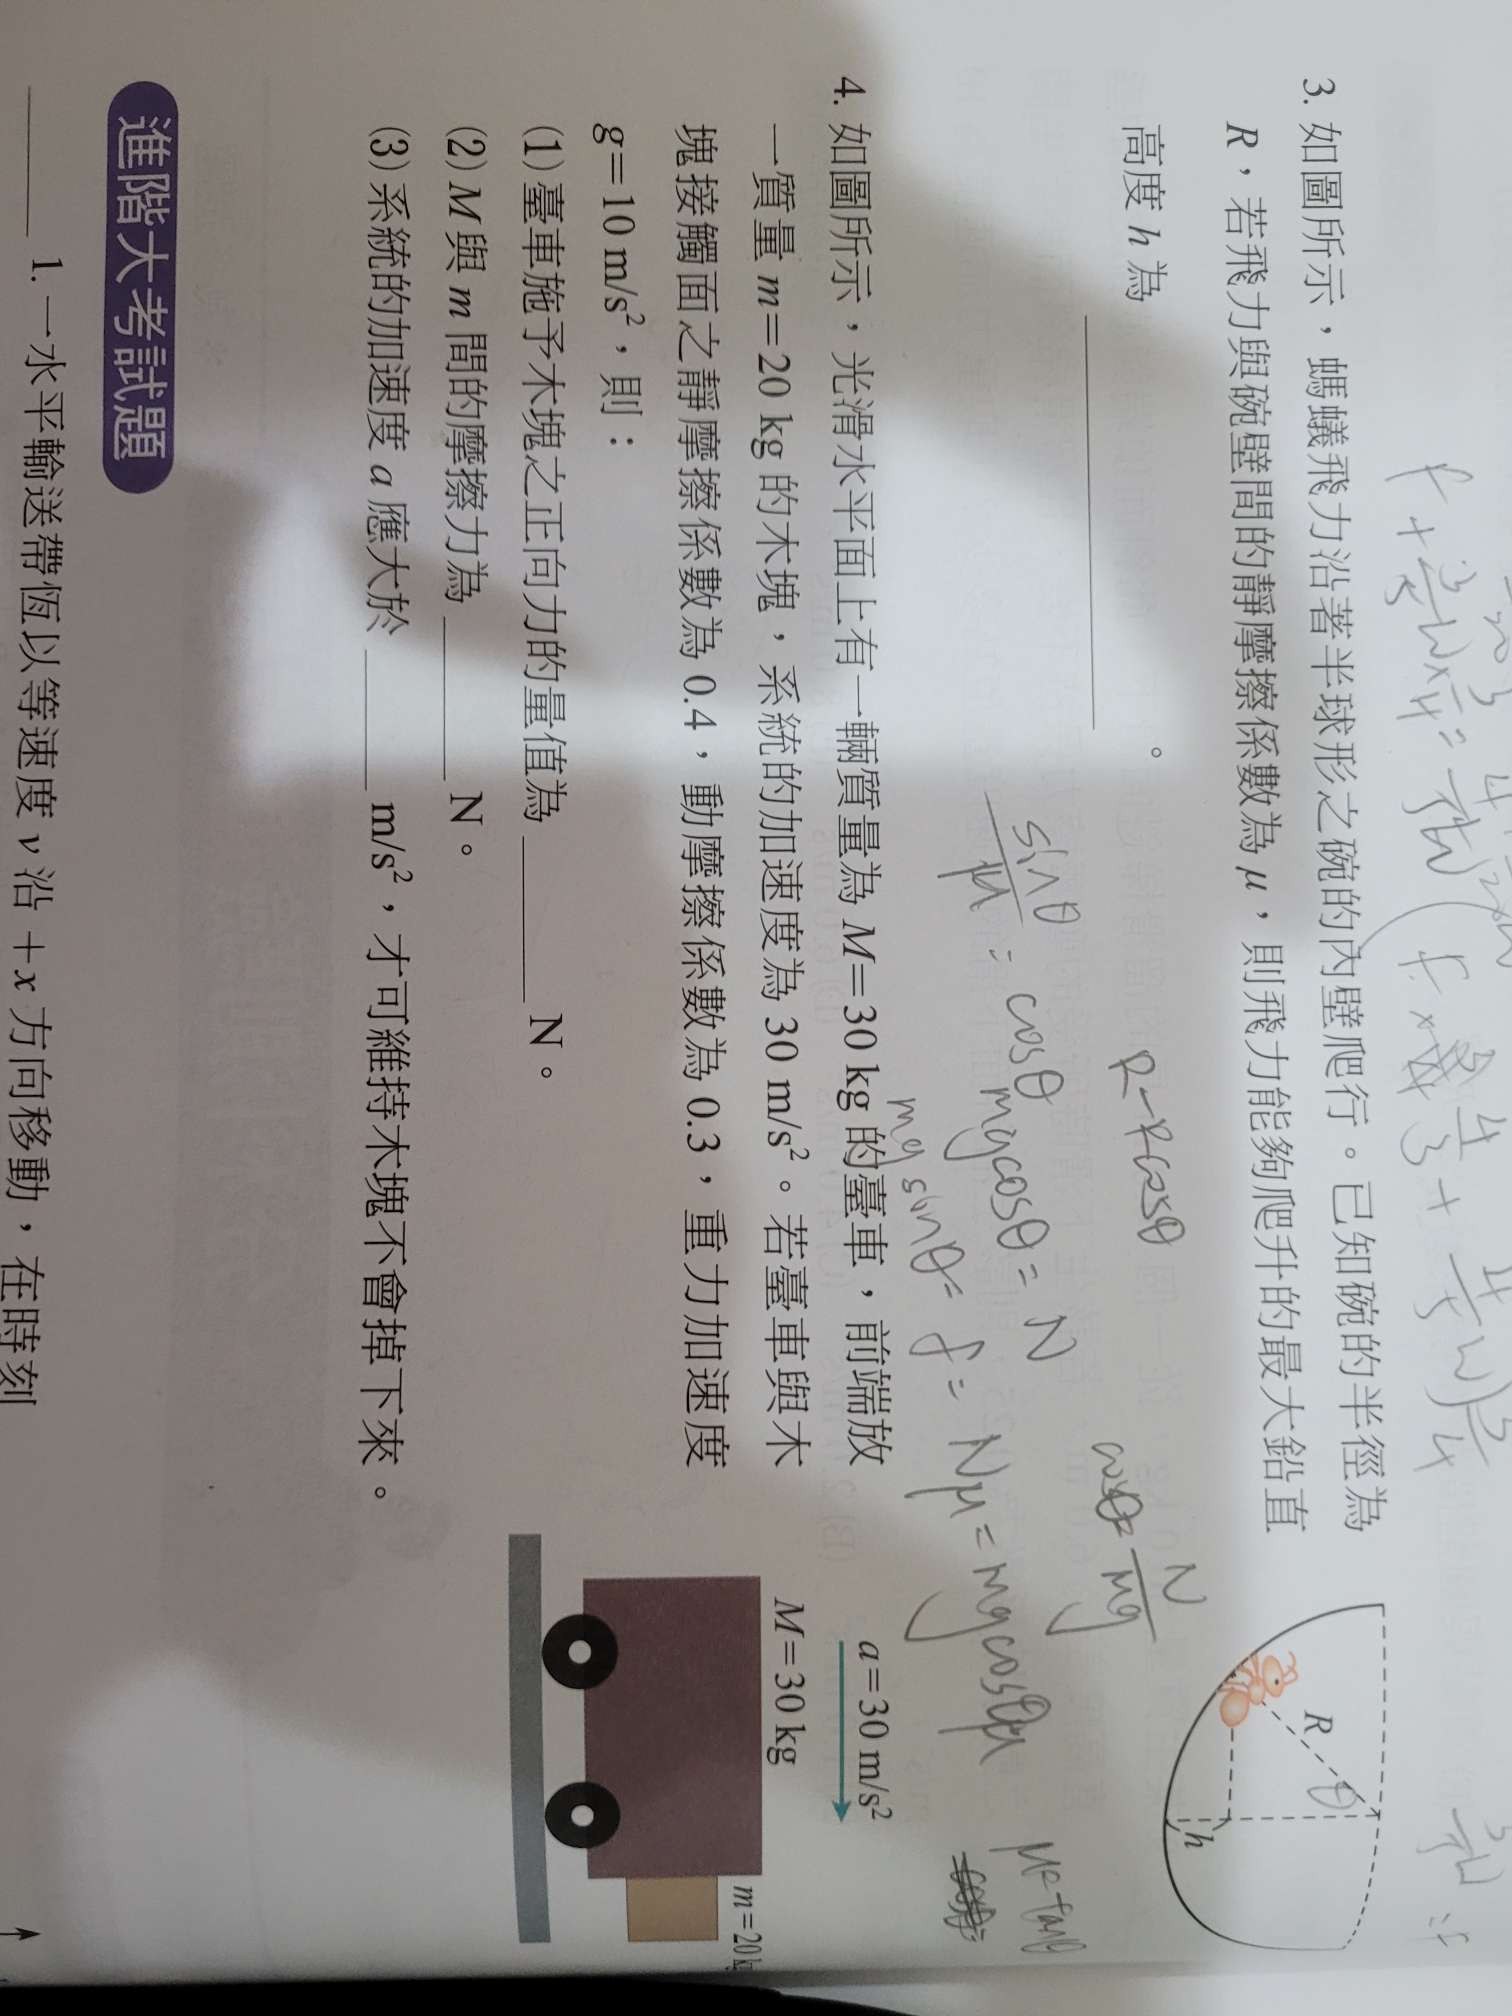 3. 如圖所示，螞蟻飛力沿著半球形之碗的內壁爬行。已知碗的半徑為
R，若飛力與碗壁間的靜摩擦係數為μ，則飛力能夠爬升的最大鉛直
高度 h 為 ______。
R
θ
h
R-Rcosθ
cosθ= N/mg
sinθ/μ = cosθ
mgcosθ = N
mg sinθ = f = Nμ = mgcosθμ
μ=tanθ
4. 如圖所示，光滑水平面上有一輛質量為 M=30 kg 的臺車，前端放
一質量 m=20 kg 的木塊，系統的加速度為 30 m/s²。若臺車與木
塊接觸面之靜摩擦係數為 0.4，動摩擦係數為 0.3，重力加速度
g=10 m/s²，則：
(1) 臺車施予木塊之正向力的量值為 ______ N。
(2) M 與 m 間的摩擦力為 ______ N。
(3) 系統的加速度 a 應大於 ______ m/s²，才可維持木塊不會掉下來。
a=30 m/s²
M=30 kg
m=20 k
進階大考試題
______ 1. 一水平輸送帶恆以等速度 v 沿 +x 方向移動，在時刻